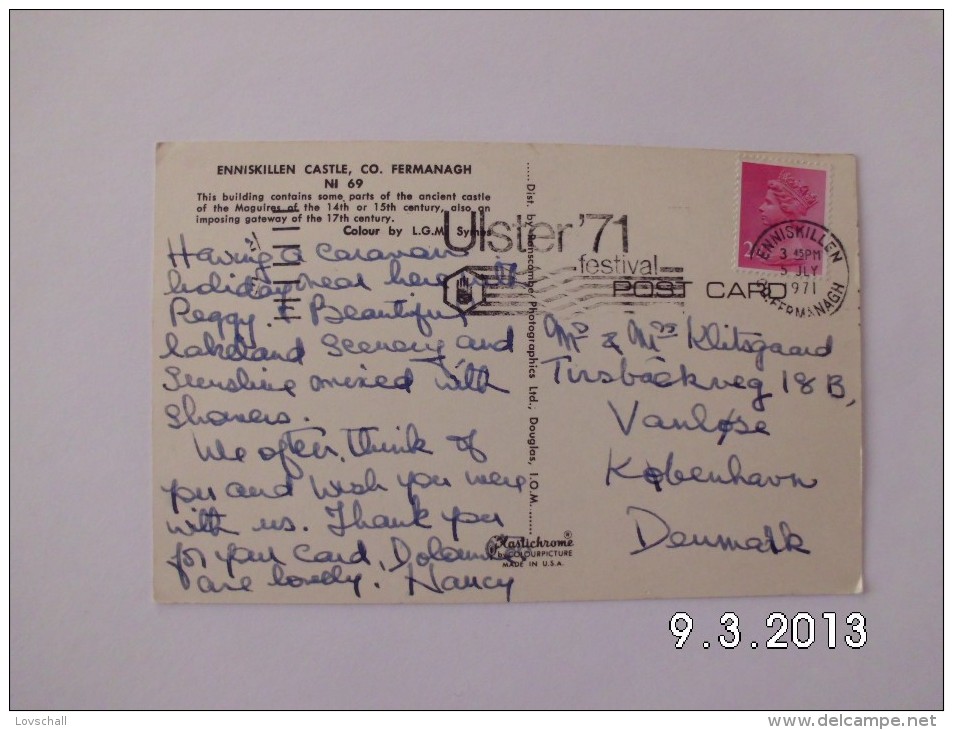 ENNISKILLEN CASTLE, CO. FERMANAGH
NI 69
This building contains some parts of the ancient castle
of the Maguires of the 14th or 15th century, also an
imposing gateway of the 17th century.
Colour by L.G.M. Symes
Having a caravan
holiday near here with
Peggy. Beautiful
lakeland scenery and
sunshine mixed with
showers.
We often think of
you and wish you were
with us. Thank you
for your card, Dolomites
are lovely. Nancy
Dist. by Bamscombe Photographics Ltd., Douglas, I.O.M.
Plastichrome®
by COLOURPICTURE
MADE IN U.S.A.
Ulster '71
festival
ENNISKILLEN
3 45PM
5 JLY
1971
CO. FERMANAGH
POST CARD
Mr & Mrs Klitsgaard
Tirsbækveg 18 B,
Vanløse
København
Denmark
9.3.2013
Lovschall
www.delcampe.net